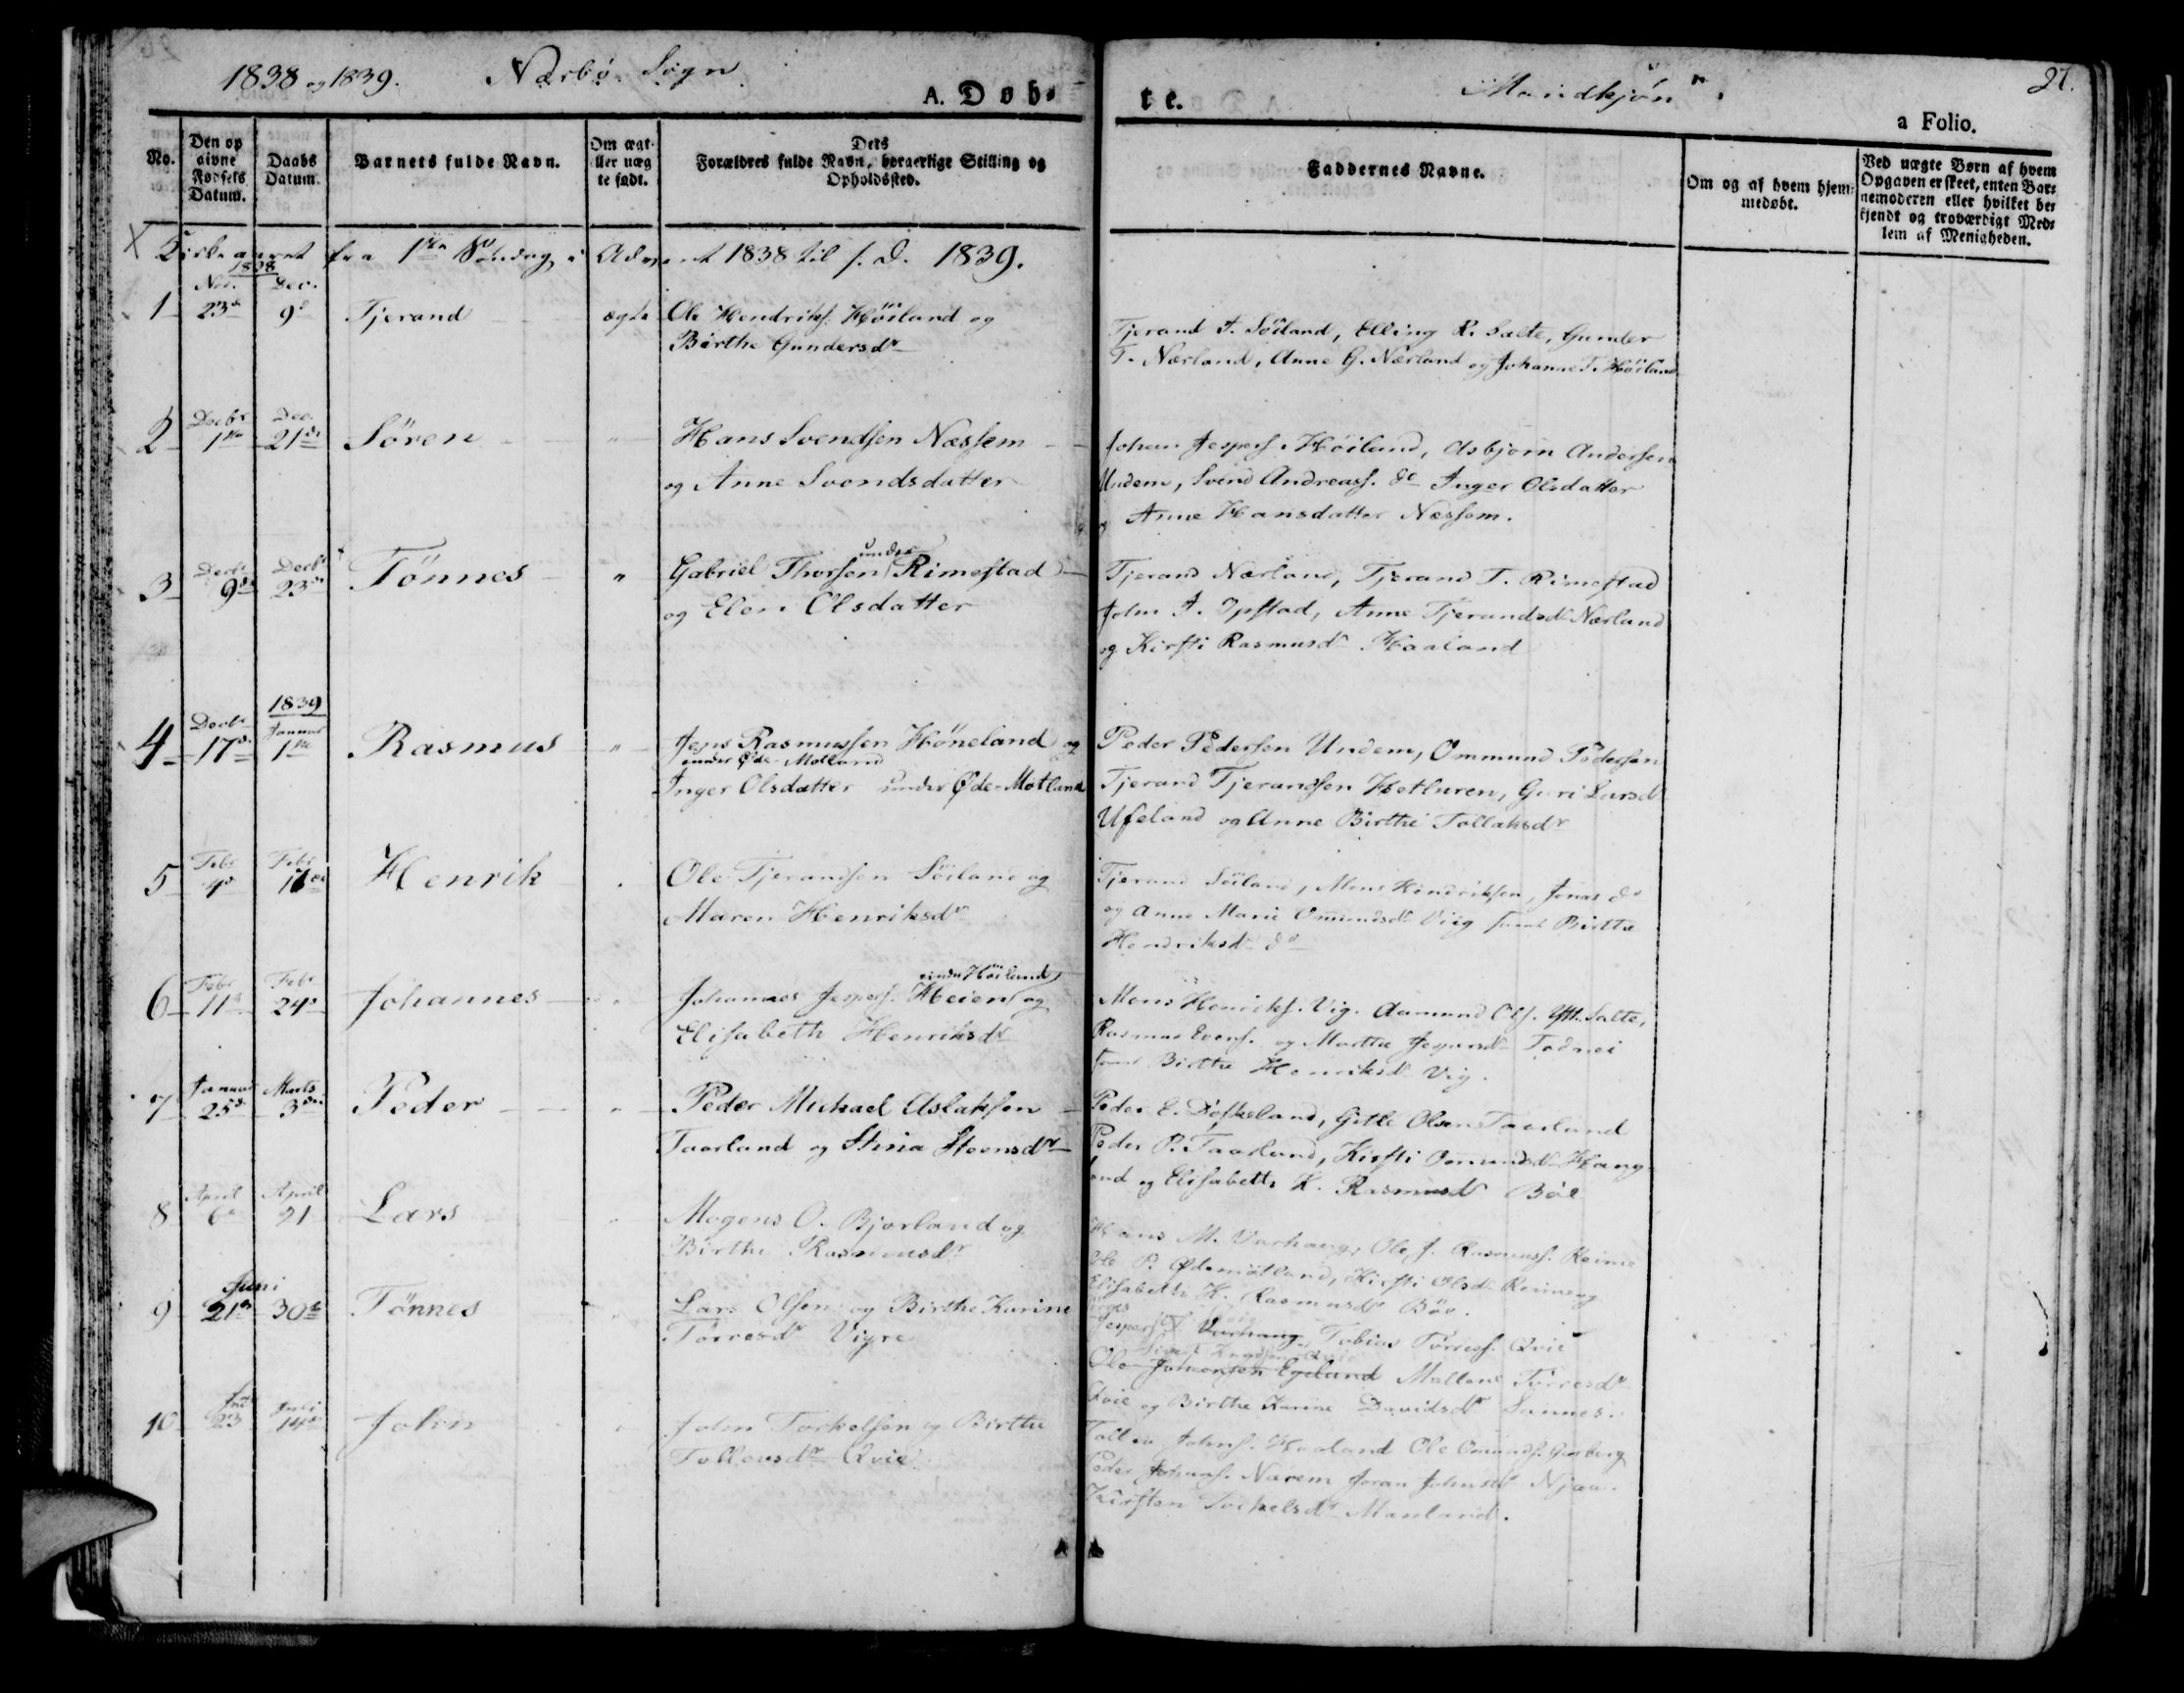 1838 og 1839. Nærbø Sogn
A. Døb-
te.
Mandkjøn.
27.
a Folio.
No.
Den op
givne
Fødsels
Datum.
Daabs
Datum.
Barnets fulde Navn.
Om ægt-
eller uæg
te født.
Dets
Forældres fulde Navn, borgerlige Stilling og
Opholdssted.
Faddernes Navne.
Om og af hvem hjem-
medøbt.
Ved uægte Børn af hvem
Opgaven er skeet, enten Bar-
nemoderen eller hvilket be-
kjendt og troværdigt Med-
lem af Menigheden.
Kirkeaaret fra 1ste Søndag i Advent 1838 til s. D. 1839.
1838
Nov. Dec.
1 23de 9de Tjerand ægte Ole Hendriks. Höiland og
Birthe Gundersdr
Tjerand T. Söiland, Elling R. Salte, Gunder
T. Nærland, Anne G. Nærland og Johanne T. Höiland
Decbr Dec.
2 1ste 21de Sören " Hans Svendsen Næssem
og Anne Svendsdatter
Johan Jespers. Höiland, Asbjørn Andersen
Undem, Svend Andreass. do Inger Olsdatter
og Anne Hansdatter Næssem.
Decbr Decbr
3 9de 23de Tönnes " Gabriel Thorsen under Rimestad
og Elen Olsdatter
Tjerand Nærland, Tjerand T. Rimestad
John A. Opstad, Anne Tjerandsdr Nærland
og Kirsti Rasmusdr Haaland
1839
Decbr Januar
4 17de 1ste Rasmus " Jens Rasmussen Höneland og
under Øde-Motland
Inger Olsdatter under Øde-Motland
Peder Pedersen Undem, Ommund Pedersen
Tjerand Tjerandsen Hetluren, Guri Larsdr
Ufeland og Anne Birthe Tollaksdr
Febr Febr
5 4de Henrik " Ole Tjerandsen Söiland og
Maren Henriksdr
Tjerand Söiland, Mons Hendriksen, Jonas do
og Anne Marie Omundsdr Viig samt Birthe
Hendriksdr do
Febr Febr
6 11te 24de Johannes " Johannes Jespers. Heien under Höiland og
Elisabeth Henriksdr
Mons Henriks. Vig. Aamund Ols. Ytt. Salte,
Rasmus Evens. og Marthe Jespersdr Todnei
samt Birthe Henriksdr Vig.
Januar Marts
7 25de 3die Peder " Peder Michael Aslaksen
Taarland og Stina Steensdr
Peder E. Doskeland, Gitle Olsen Taarland
Peder P. Taarland, Kirsti Omundsdr Haug-
land og Elisabeth K. Rasmusdr Böe
April April
8 6te 21 Lars " Mogens O. Bjorland og
Birthe Rasmusdr
Hans M. Varhaug, Ole J. Rasmuss. Reime
Ole P. Ødemotland, Kirsti Olsdr Reime og
Elisabeth K. Rasmusdr Böe.
Juni
9 21de 30te Tönnes " Lars Olsen og Birthe Karine
Törresdr Vigre
Jespers. T. Varhaug Tobias Törress. Qvie
Ole Johnensen Egeland Mallene Törresdr
Qvie og Birthe Karine Davidsdr Sannes.
Juni Juli
10 23 14de John " John Torkelsen og Birthe
Tollevsdr Qvie
Tollev Johns. Haaland Ole Omunds.
Peder Johans. Nærem Joran Johnsdr Njaa.
Kirsten Mauland.